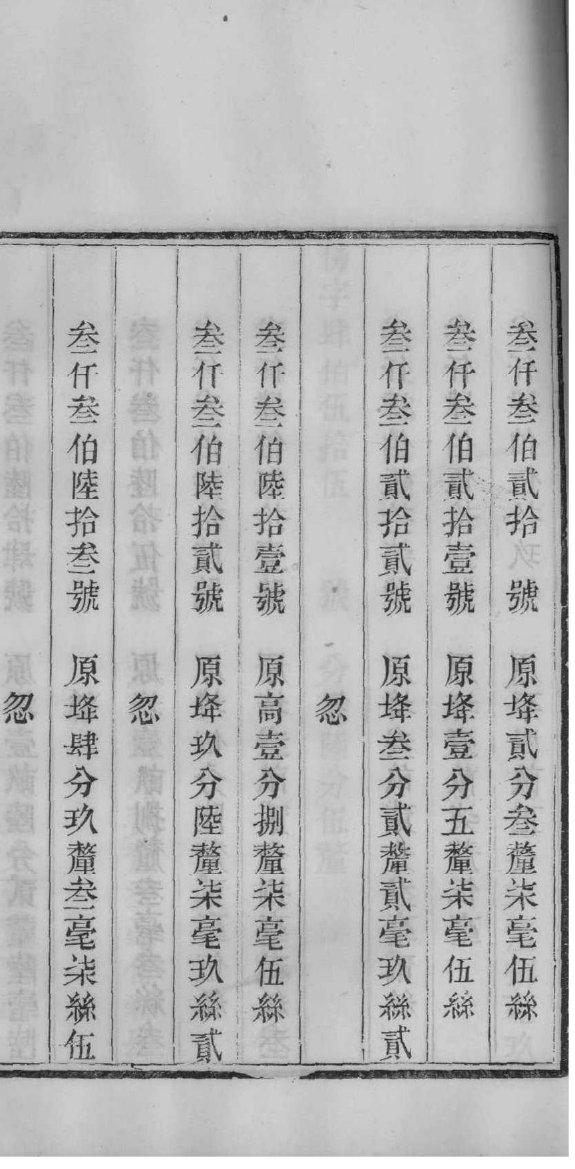 叁仟叁伯貳拾　號　原埄貳分叁釐柒毫伍絲
叁仟叁伯貳拾壹號　原埄壹分五釐柒毫伍絲
叁仟叁伯貳拾貳號　原埄叁分貳釐貳毫玖絲貳
忽
叁仟叁伯陸拾壹號　原高壹分捌釐柒毫伍絲
叁仟叁伯陸拾貳號　原埄玖分陸釐柒毫玖絲貳
忽
叁仟叁伯陸拾叁號　原埄肆分玖釐叁毫柒絲伍
忽